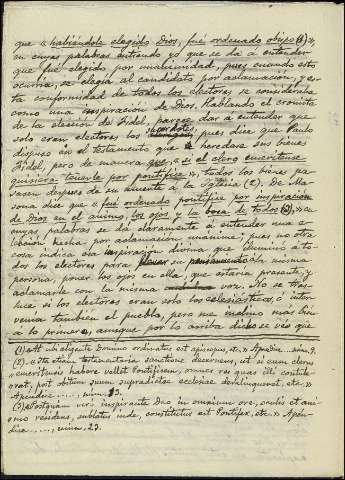 que « habiéndole elegido Dios, fué ordenado obispo (1) »,
en cuyas palabras entiendo yo que se da á entender
que fué elegido por unanimidad, pues cuando esto
ocurría, se elegía al candidato por aclamación, y es-
ta conformidad de todos los electores se consideraba
como una inspiración de Dios. Hablando el cronista
de la elección de Fidel, parece dar á entender que
solo eran electores los sacerdotes, pues dice que Paulo
dispuso en el testamento que le heredase sus bienes
Fidel, pero de manera que, « si el clero emeritense
quisiera tenerle por pontífice », todos los bienes pa-
sasen después de su muerte á la Iglesia (2). De Ma-
sona dice que « fué ordenado pontífice por inspiración
de Dios en el ánimo, los ojos y la boca de todos (3) », en
cuyas palabras se da claramente á entender una e-
lección hecha por aclamación unánime; pues no otra
cosa indica esa inspiración divina, que iluminó á to-
dos los electores para la misma
persona, poner los ojos en ella, que estaría presente, y
aclamarle con la misma voz. No se tras-
luce si los electores eran solo los eclesiásticos, ó inter-
venía también el pueblo, pero me inclino mas bien
á lo primero, aunque por lo arriba dicho se ve que
(1) « At ubi eligente Domino ordinatus est episcopus, etc. » Apéndice.... núm. 9.
(2) « Etiam testamentaria sanctione decernens, ut si eum clerus
« emeritensis habere vellet Pontificem, omnes res quas illi contule-
rat, post obitum suum supradictae ecclesiae derelinqueret, etc. »
Apéndice ....., núm. 13.
(3) « Postquam vero inspirante Deo in omnium ore, oculis et ani-
mo residens, sublatus inde, constitutus est Pontifex, etc. » Apén-
dice ....., núm. 23.